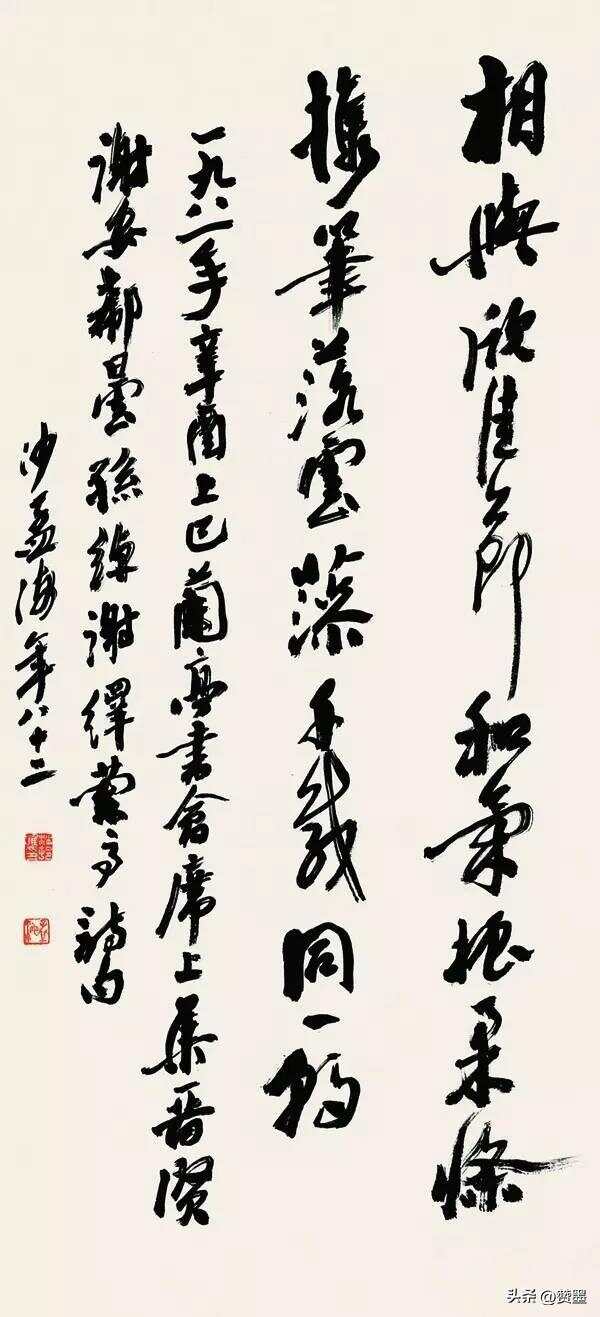 相與欣佳節和氣振柔條
攜筆落雲藻千載同一朝
一九八一年辛酉上巳蘭亭書會席上集晉賢
謝安郗曇孫綽謝繹蘭亭詩句
沙孟海年八十二
头条@赞墨